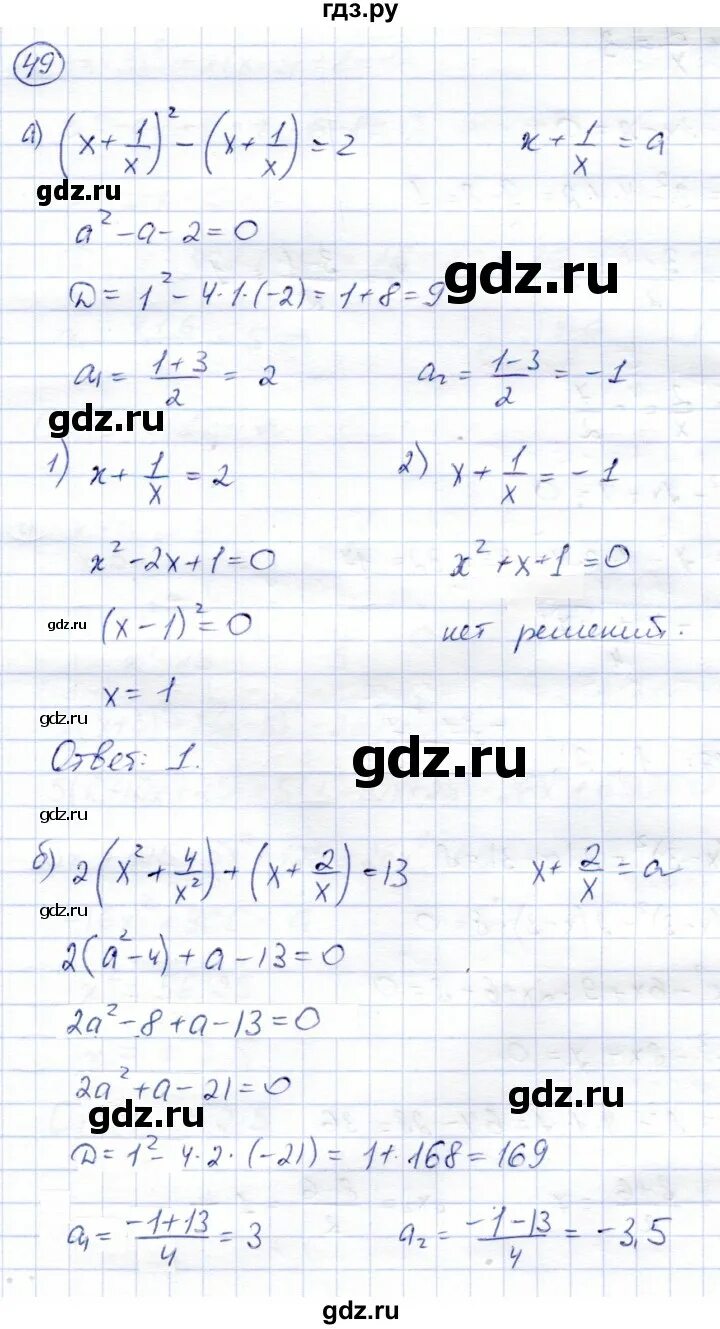 гдз.ру
49
а) (x + 1/x)² − (x + 1/x) = 2    x + 1/x = a
gdz.ru
a² − a − 2 = 0
gdz.ru
D = 1² − 4·1·(−2) = 1 + 8 = 9
a₁ = (1+3)/2 = 2    a₂ = (1−3)/2 = −1
gdz.ru
1) x + 1/x = 2    2) x + 1/x = −1
x² − 2x + 1 = 0    x² + x + 1 = 0
gdz.ru
(x − 1)² = 0    нет решений.
x = 1
gdz.ru
Ответ: 1.
gdz.ru
gdz.ru
б) 2(x² + 4/x²) + (x + 2/x) = 13    x + 2/x = a
gdz.ru
2(a² − 4) + a − 13 = 0
2a² − 8 + a − 13 = 0
2a² + a − 21 = 0
gdz.ru
gdz.ru
D = 1² − 4·2·(−21) = 1 + 168 = 169
a₁ = (−1+13)/4 = 3    a₂ = (−1−13)/4 = −3,5
gdz.ru